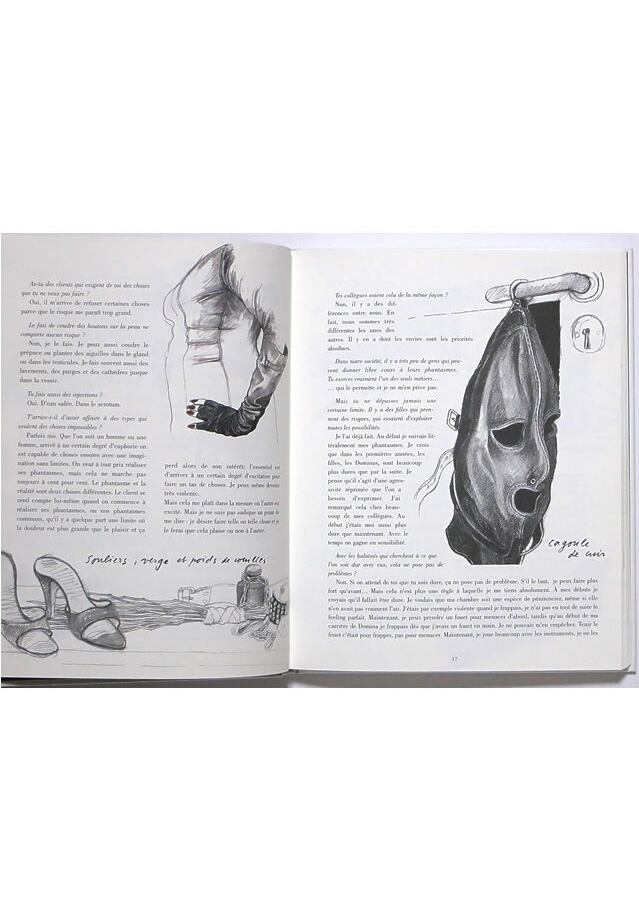 As-tu des clients qui exigent de toi des choses
que tu ne veux pas faire ?
Oui, il m'arrive de refuser certaines choses
parce que le risque me paraît trop grand.
Le fait de coudre des boutons sur la peau ne
comporte aucun risque ?
Non, je le fais. Je peux aussi coudre le
prépuce ou planter des aiguilles dans le gland
ou dans les testicules. Je fais souvent aussi des
lavements, des purges et des cathédres jusque
dans la vessie.
Tu fais aussi des injections ?
Oui. D'eau salée. Dans le scrotum.
T'arrive-t-il d'avoir affaire à des types qui
veulent des choses impossibles ?
Parfois oui. Que l'on soit un homme ou une
femme, arrivé à un certain degré d'euphorie on
est capable de choses inouïes avec une imagi-
nation sans limites. On veut à tout prix réaliser
ses phantasmes, mais cela ne marche pas
toujours à cent pour cent. Le phantasme et la
réalité sont deux choses différentes. Le client se
rend compte lui-même quand on commence à
réaliser ses phantasmes, ou nos phantasmes
communs, qu'il y a quelque part une limite où
la douleur est plus grande que le plaisir et ça
perd alors de son intérêt; l'essentiel
c'est d'arriver à un certain degré d'excitation pour
faire un tas de choses. Je peux même devenir
très violente.
Mais cela me plaît dans la mesure où l'autre est
excité. Mais je ne suis pas sadique au point de
me dire : je désire faire telle ou telle chose et je
le ferai que cela plaise ou non à l'autre.
Souliers, verge et poids de couilles
Tes collègues voient cela de la même façon ?
Non, il y a des dif-
férences entre nous. En
fait, nous sommes très
différentes les unes des
autres. Il y en a dont les envies sont les priorités
absolues.
Dans notre société, il y a très peu de gens qui peu-
vent donner libre cours à leurs phantasmes.
Tu exerces vraiment l'un des seuls métiers…
… qui le permette et je ne m'en prive pas.
Mais tu ne dépasses jamais une
certaine limite. Il y a des filles qui pren-
nent des risques, qui essaient d'exploiter
toutes les possibilités.
Je l'ai déjà fait. Au début je suivais lit-
téralement mes phantasmes. Je crois
que dans les premières années, les
filles, les Dominas, sont beaucoup
plus dures que par la suite. Je
pense qu'il s'agit d'une agres-
sivité réprimée que l'on a
besoin d'exprimer. J'ai
remarqué cela chez beau-
coup de mes collègues. Au
début j'étais moi aussi plus
dure que maintenant. Avec le
temps on gagne en sensibilité.
cagoule
de cuir
Avec les habitués qui cherchent à ce que
l'on soit dur avec eux, cela ne pose pas de
problèmes ?
Non. Si on attend de toi que tu sois dure, ça ne pose pas de problème. S'il le faut, je peux faire plus
fort qu'avant… Mais cela n'est plus une règle à laquelle je me tiens absolument. A mes débuts je
croyais qu'il fallait être dure. Je voulais que ma chambre soit une espèce de pénitencier, même si elle
n'en avait pas vraiment l'air. J'étais par exemple violente quand je frappais, je n'ai pas eu tout de suite le
feeling parfait. Maintenant, je peux prendre un fouet pour menacer d'abord, tandis qu'au début de ma
carrière de Domina je frappais dès que j'avais un fouet en main. Je ne pouvais m'en empêcher. Tenir le
fouet c'était pour frapper, pas pour menacer. Maintenant, je joue beaucoup avec les instruments, je ne les
17